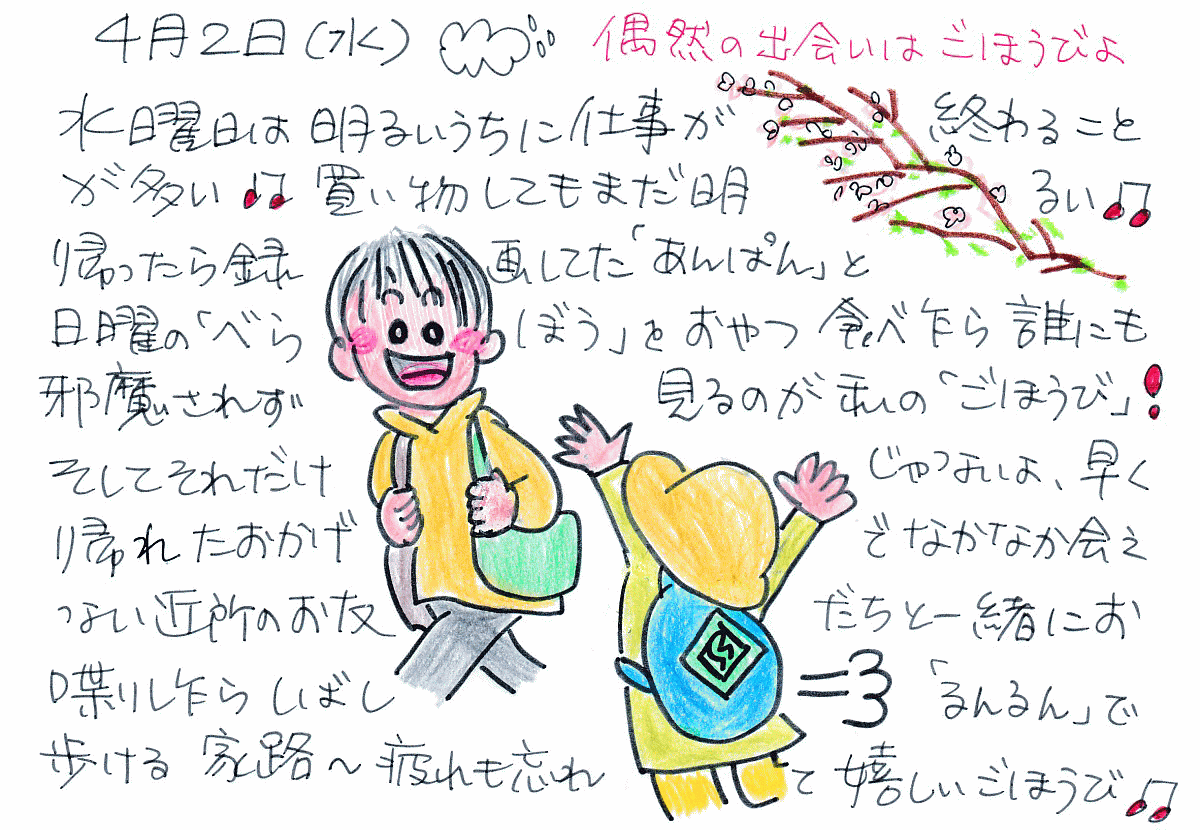 4月2日(水) 偶然の出会いはごほうびよ
水曜日は明るいうちに仕事が終わること
が多い♫買い物してもまだ明るい♫
帰ったら録画してた「あんぱん」と
日曜の「べらぼう」をおやつ食べ乍ら誰にも
邪魔されず見るのが私の「ごほうび」!
そしてそれだけじゃないよ、早く
帰れたおかげでなかなか会え
ない近所のお友だちと一緒にお
喋りし乍らしばし「るんるん」で
歩ける家路〜疲れも忘れて嬉しいごほうび♫